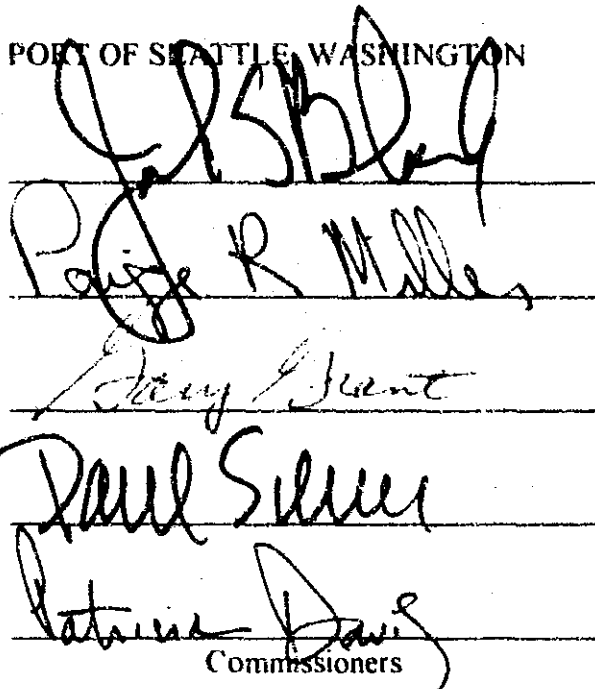 PORT OF SEATTLE, WASHINGTON
Jack S Block
Paige R Miller
Gary Grant
Paul S
Patricia Davis
Commissioners